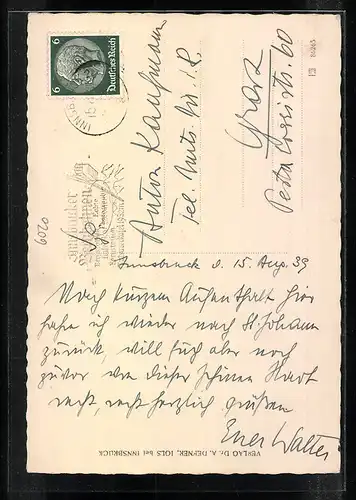 6
Deutsches Reich
6
INNSBRUCK
Innsbrucker
Anton Kaufmann
Tel. Amts. Dir. i. R.
Graz
60
0209
Innsbruck d. 15. Aug. 39
Nach kurzem Aufenthalt hier
fahre ich wieder nach St. Johann
zurück, will Euch aber noch
zuvor von dieser schönen Stadt
recht, recht herzlich grüßen
Euer Walter
VERLAG Dr. A. DEFNER, IGLS bei INNSBRUCK